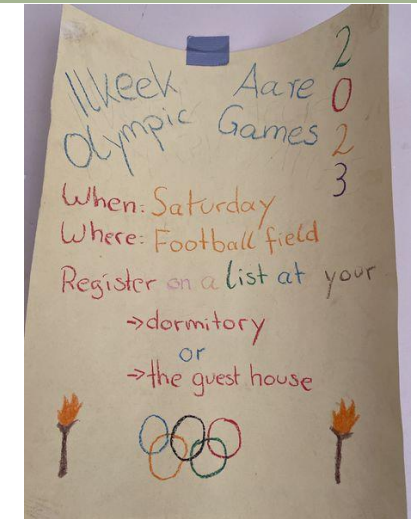 Ilkeek Aare
Olympic Games
2023
When: Saturday
Where: Football field
Register on a list at your
→dormitory
or
→the guest house